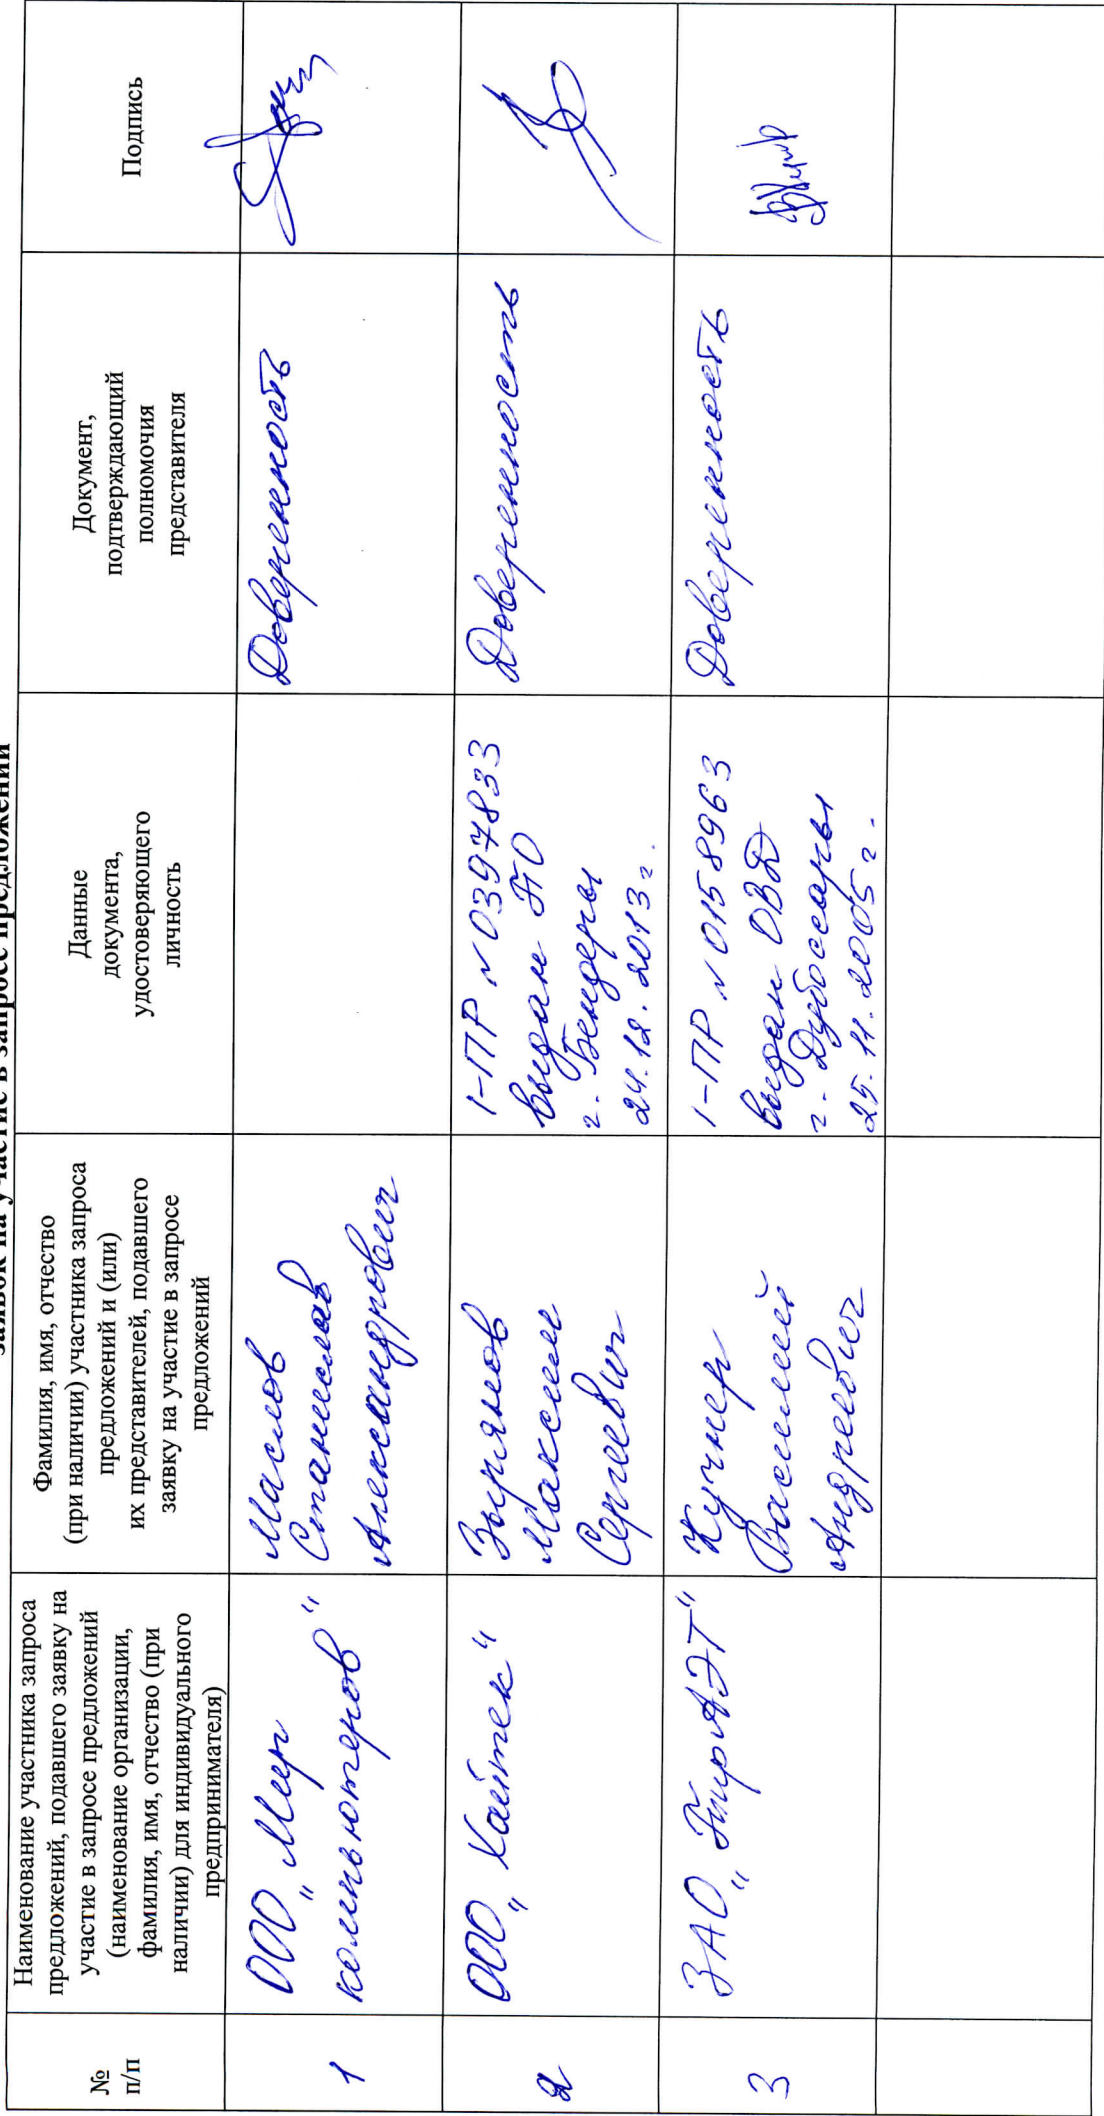 заявок на участие в запросе предложений
№
п/п
Наименование участника запроса
предложений, подавшего заявку на
участие в запросе предложений
(наименование организации,
фамилия, имя, отчество (при
наличии) для индивидуального
предпринимателя)
Фамилия, имя, отчество
(при наличии) участника запроса
предложений и (или)
их представителей, подавшего
заявку на участие в запросе
предложений
Данные
документа,
удостоверяющего
личность
Документ,
подтверждающий
полномочия
представителя
Подпись
1
ООО „Мир
компьютеров“
Маслов
Станислав
Александрович
Доверенность
2
ООО „Хайтек“
Зырянов
Максим
Сергеевич
1-ПР № 0397833
выдан ПО
г. Бендеры
24.12.2013г.
Доверенность
3
ЗАО „ТирАЭТ“
Кучнер
Василий
Андреевич
1-ПР № 0158963
выдан ОВД
г. Дубоссары
25.11.2005г.
Доверенность